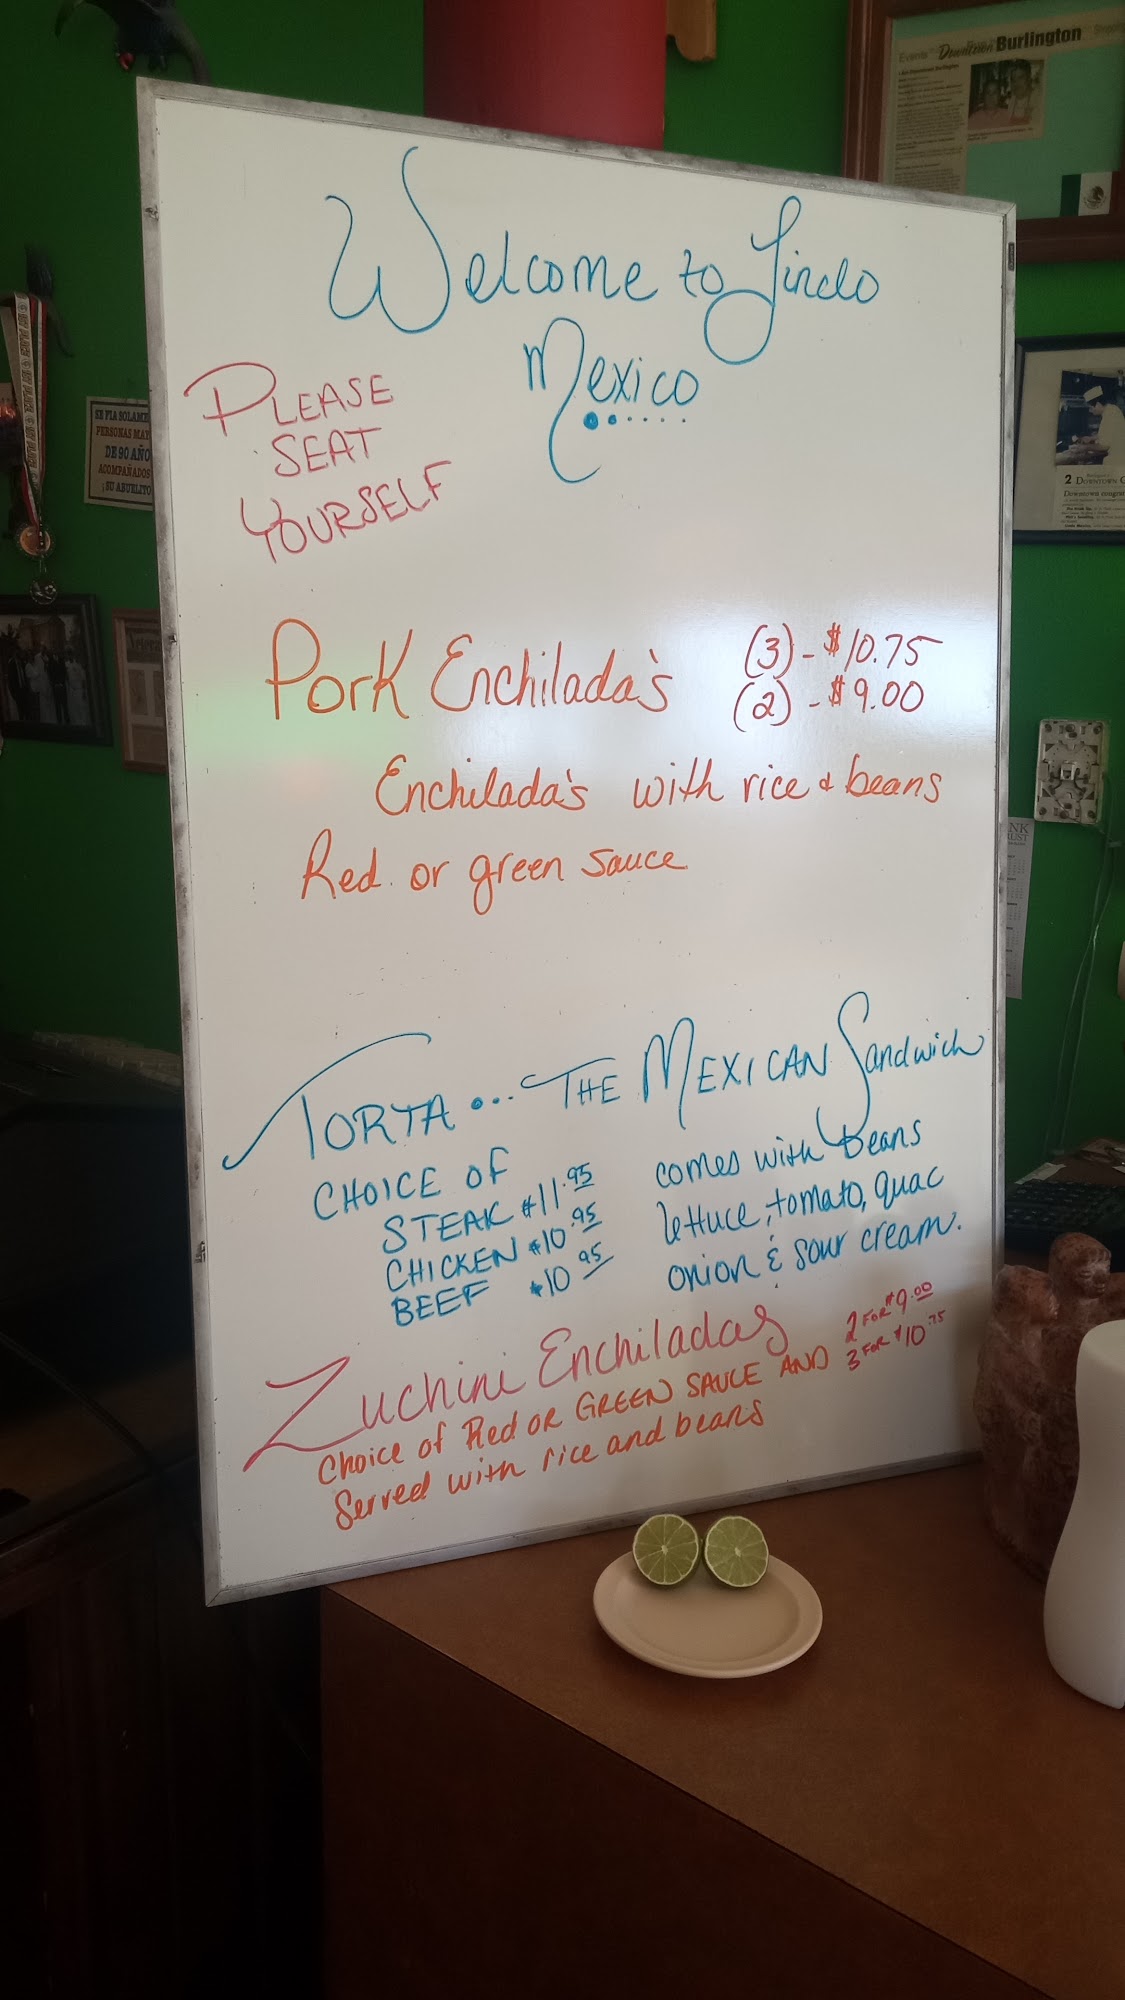 Events
Downtown Burlington
Welcome to Lindo
Mexico
PLEASE
SEAT
YOURSELF
SE FIA SOLAME
PERSONAS MAY
DE 90 AÑO
ACOMPAÑADOS
SU ABUELITO
2 DOWNTOWN
Downtown congrat
Pork Enchilada's (3) - $10.75
(2) - $9.00
Enchilada's with rice & beans
Red or green sauce
TORTA... THE MEXICAN Sandwich
CHOICE OF
STEAK $11.95
CHICKEN $10.95
BEEF $10.95
comes with beans
lettuce, tomato, guac
onion & sour cream.
Zuchini Enchiladas 2 FOR $9.00
3 FOR $10.75
Choice of Red OR GREEN SAUCE AND
Served with rice and beans